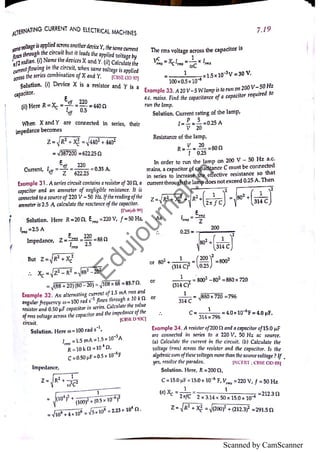 ALTERNATING CURRENT AND ELECTRICAL MACHINES
7.19
same voltage is applied across another device Y, the same current
flows through the circuit but it leads the applied voltage by
π/2 radian. (i) Name the devices X and Y. (ii) Calculate the
current flowing in the circuit, when same voltage is applied
across the series combination of X and Y.
Solution. (i) Device X is a resistor and Y is a
capacitor.
(ii) Here R = X_C = 220 / 0.5 = 440 Ω
When X and Y are connected in series, their
impedance becomes
Z = √(R² + X_C²) = √(440² + 440²)
= √387200 = 622.25 Ω
Current, I_eff = 220 / 622.25 = 0.35 A.
Example 31. A series circuit contains a resistor of 20 Ω, a
capacitor and an ammeter of negligible resistance. It is
connected to a source of 220 V - 50 Hz. If the reading of the
ammeter is 2.5 A, calculate the reactance of the capacitor.
Solution. Here R = 20 Ω, ℰ_rms = 220 V, f = 50 Hz,
I_rms = 2.5 A
Impedance, Z = ℰ_rms / I_rms = 220 / 2.5 = 88 Ω
But Z = √(R² + X_C²)
∴ X_C = √(Z² – R²) = √(88² – 20²)
= √((88 + 20)(88 – 20)) = √(108 × 68) = 85.7 Ω.
Example 32. An alternating current of 1.5 mA rms and
angular frequency ω = 100 rad s⁻¹ flows through a 10 k Ω
resistor and 0.50 μF capacitor in series. Calculate the value
of rms voltage across the capacitor and the impedance of the
circuit.
Solution. Here ω = 100 rad s⁻¹,
I_rms = 1.5 mA = 1.5 × 10⁻³ A
R = 10 k Ω = 10⁴ Ω,
C = 0.50 μF = 0.5 × 10⁻⁶ F
Impedance,
Z = √(R² + 1 / ω²C²)
= √((10⁴)² + 1 / ((100)² × (0.5 × 10⁻⁶)²))
= √(10⁸ + 4 × 10⁸) = √5 × 10⁴ = 2.23 × 10⁴ Ω.
The rms voltage across the capacitor is
V_rms = X_C I_rms = 1 / ωC × I_rms
= 1 / (100 × 0.5 × 10⁻⁶) × 1.5 × 10⁻³ V = 30 V.
Example 33. A 20 V - 5 W lamp is to run on 200 V - 50 Hz
a.c. mains. Find the capacitance of a capacitor required to
run the lamp.
Solution. Current rating of the lamp,
I = P / V = 5 / 20 = 0.25 A
Resistance of the lamp,
R = V / I = 20 / 0.25 = 80 Ω
In order to run the lamp on 200 V - 50 Hz a.c.
mains, a capacitor of capacitance C must be connected
in series to increase the effective resistance so that
current through the lamp does not exceed 0.25 A. Then
Z = √(R² + X_C²) = √(R² + (1 / 2π f C)²) = √(80² + (1 / 314 C)²)
As I_rms = ℰ_rms / Z
∴ 0.25 = 200 / √(80² + (1 / 314 C)²)
or 80² + 1 / (314 C)² = (200 / 0.25)² = 800²
or 1 / (314 C)² = 800² – 80² = 880 × 720
or 1 / 314 C = √(880 × 720) = 796
∴ C = 1 / (314 × 796) = 4.0 × 10⁻⁶ F = 4.0 μF.
Example 34. A resistor of 200 Ω and a capacitor of 15.0 μF
are connected in series to a 220 V, 50 Hz ac source.
(a) Calculate the current in the circuit. (b) Calculate the
voltage (rms) across the resistor and the capacitor. Is the
algebraic sum of these voltages more than the source voltage ? If
yes, resolve the paradox.
Solution. Here, R = 200 Ω,
C = 15.0 μF = 15.0 × 10⁻⁶ F, V_rms = 220 V, f = 50 Hz
(a) X_C = 1 / 2π f C = 1 / (2 × 3.14 × 50 × 15.0 × 10⁻⁶) = 212.3 Ω
Z = √(R² + X_C²) = √((200)² + (212.3)²) = 291.5 Ω
Edujournal
Scanned by CamScanner